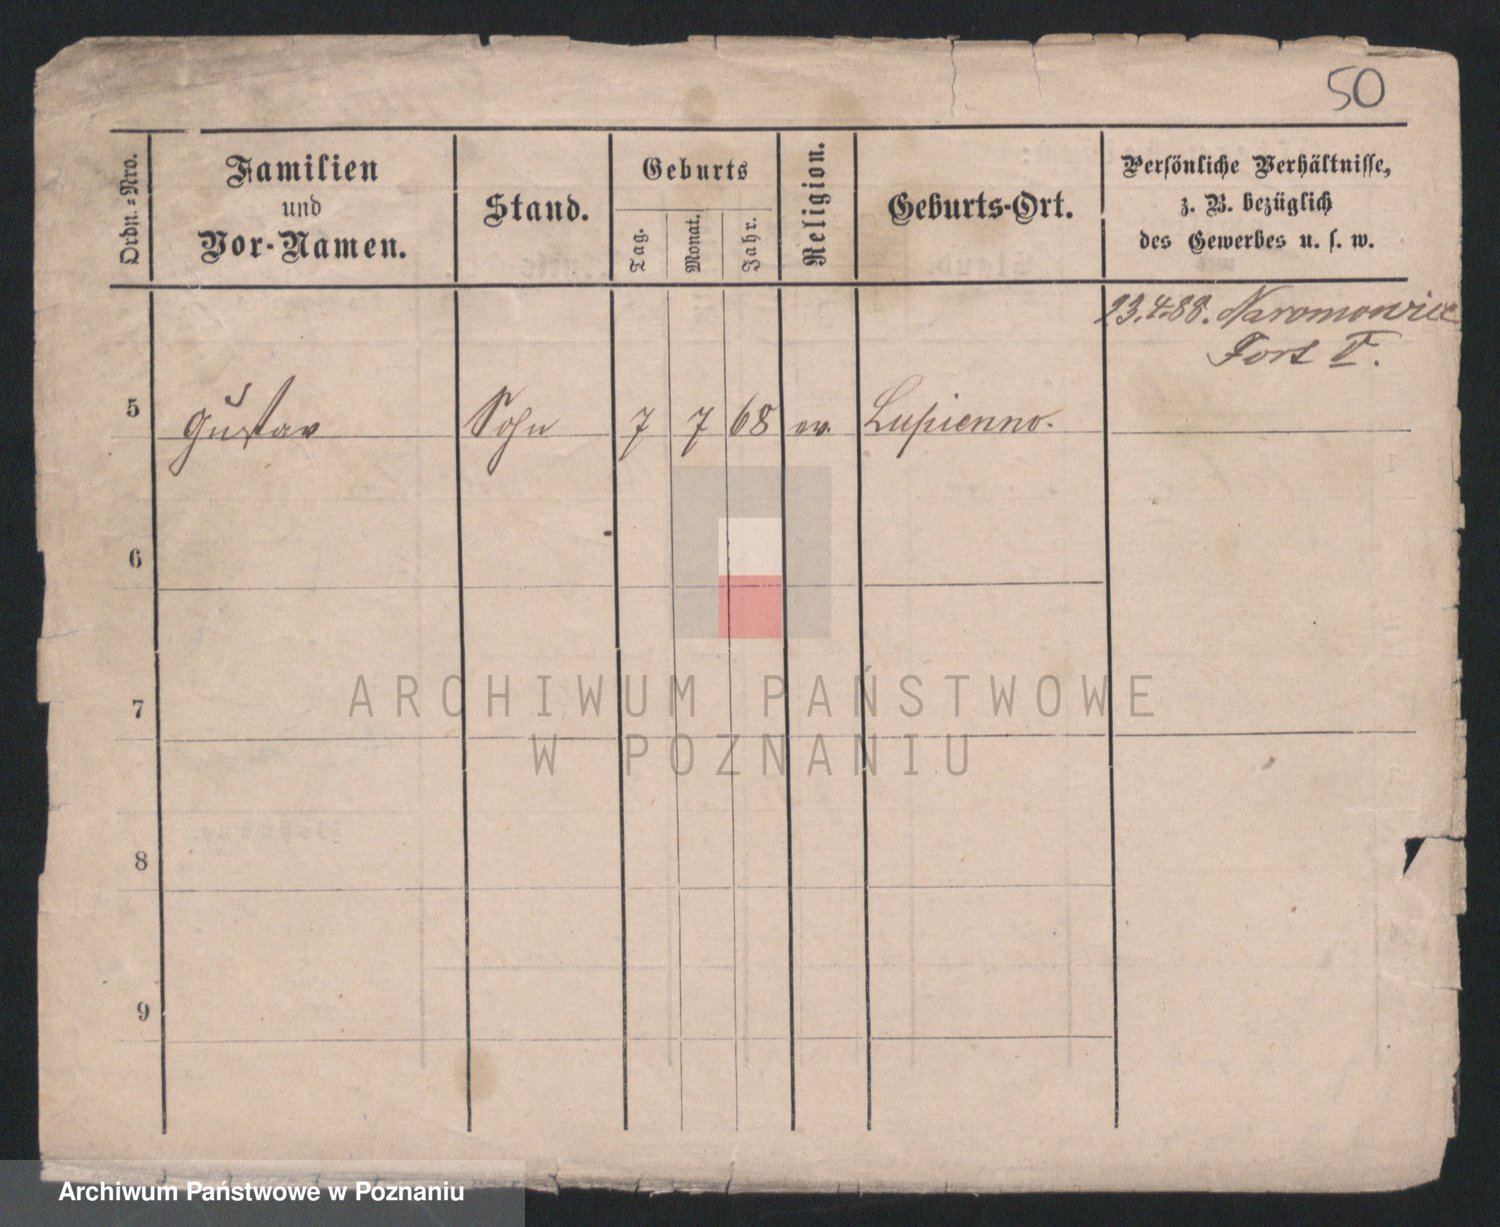 50
Ordn.-Nro.
Familien
und
Vor-Namen.
Stand.
Geburts
Tag.
Monat.
Jahr.
Religion.
Geburts-Ort.
Persönliche Verhältnisse,
z. B. bezüglich
des Gewerbes u. s. w.
23.4.88. Naromowice
Fort V.
5 Gustav Sohn 7 7 68 ev. Lupienno.
6
7
8
9
ARCHIWUM PAŃSTWOWE
W POZNANIU
Archiwum Państwowe w Poznaniu